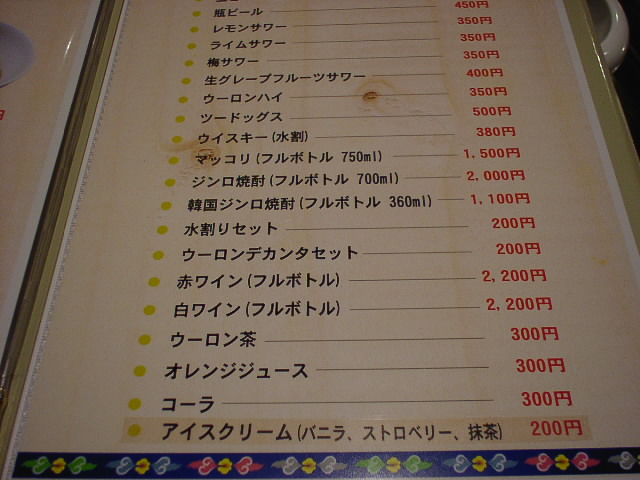 瓶ビール 450円
レモンサワー 350円
ライムサワー 350円
梅サワー 350円
生グレープフルーツサワー 400円
ウーロンハイ 350円
ツードッグス 500円
ウイスキー(水割) 380円
マッコリ(フルボトル 750ml) 1,500円
ジンロ焼酎(フルボトル 700ml) 2,000円
韓国ジンロ焼酎(フルボトル 360ml) 1,100円
水割りセット 200円
ウーロンデカンタセット 200円
赤ワイン(フルボトル) 2,200円
白ワイン(フルボトル) 2,200円
ウーロン茶 300円
オレンジジュース 300円
コーラ 300円
アイスクリーム(バニラ、ストロベリー、抹茶) 200円